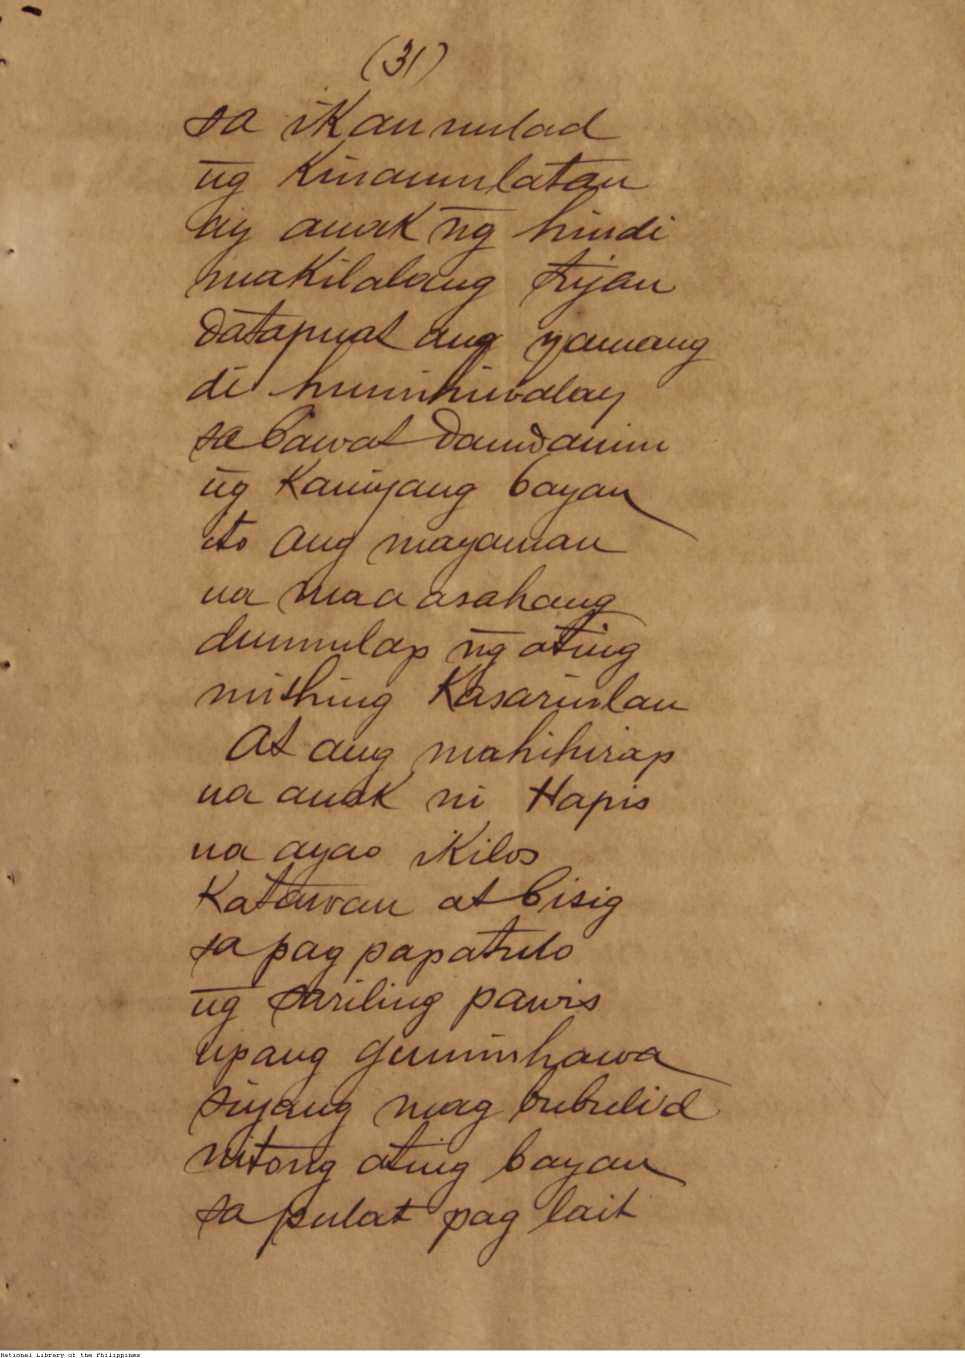 (31)
sa ikauunlad
n̄g Kinamulatan
ay anak n̄g hindi
makilalang tiyan
Datapuat ang yamang
di humihiwalay
sa bawat damdamin
n̄g Kaniyang bayan
ito ang mayaman
na maa asahang
dumulap n̄g ating
mithing Kasarinlan
At ang mahihirap
na anak ni Hapis
na ayao ikilos
Katawan at bisig
sa pag papatulo
n̄g sariling pawis
upang guminhawa
siyang mag bubulid
nitong ating bayan
sa pulat pag lait
National Library of the Philippines